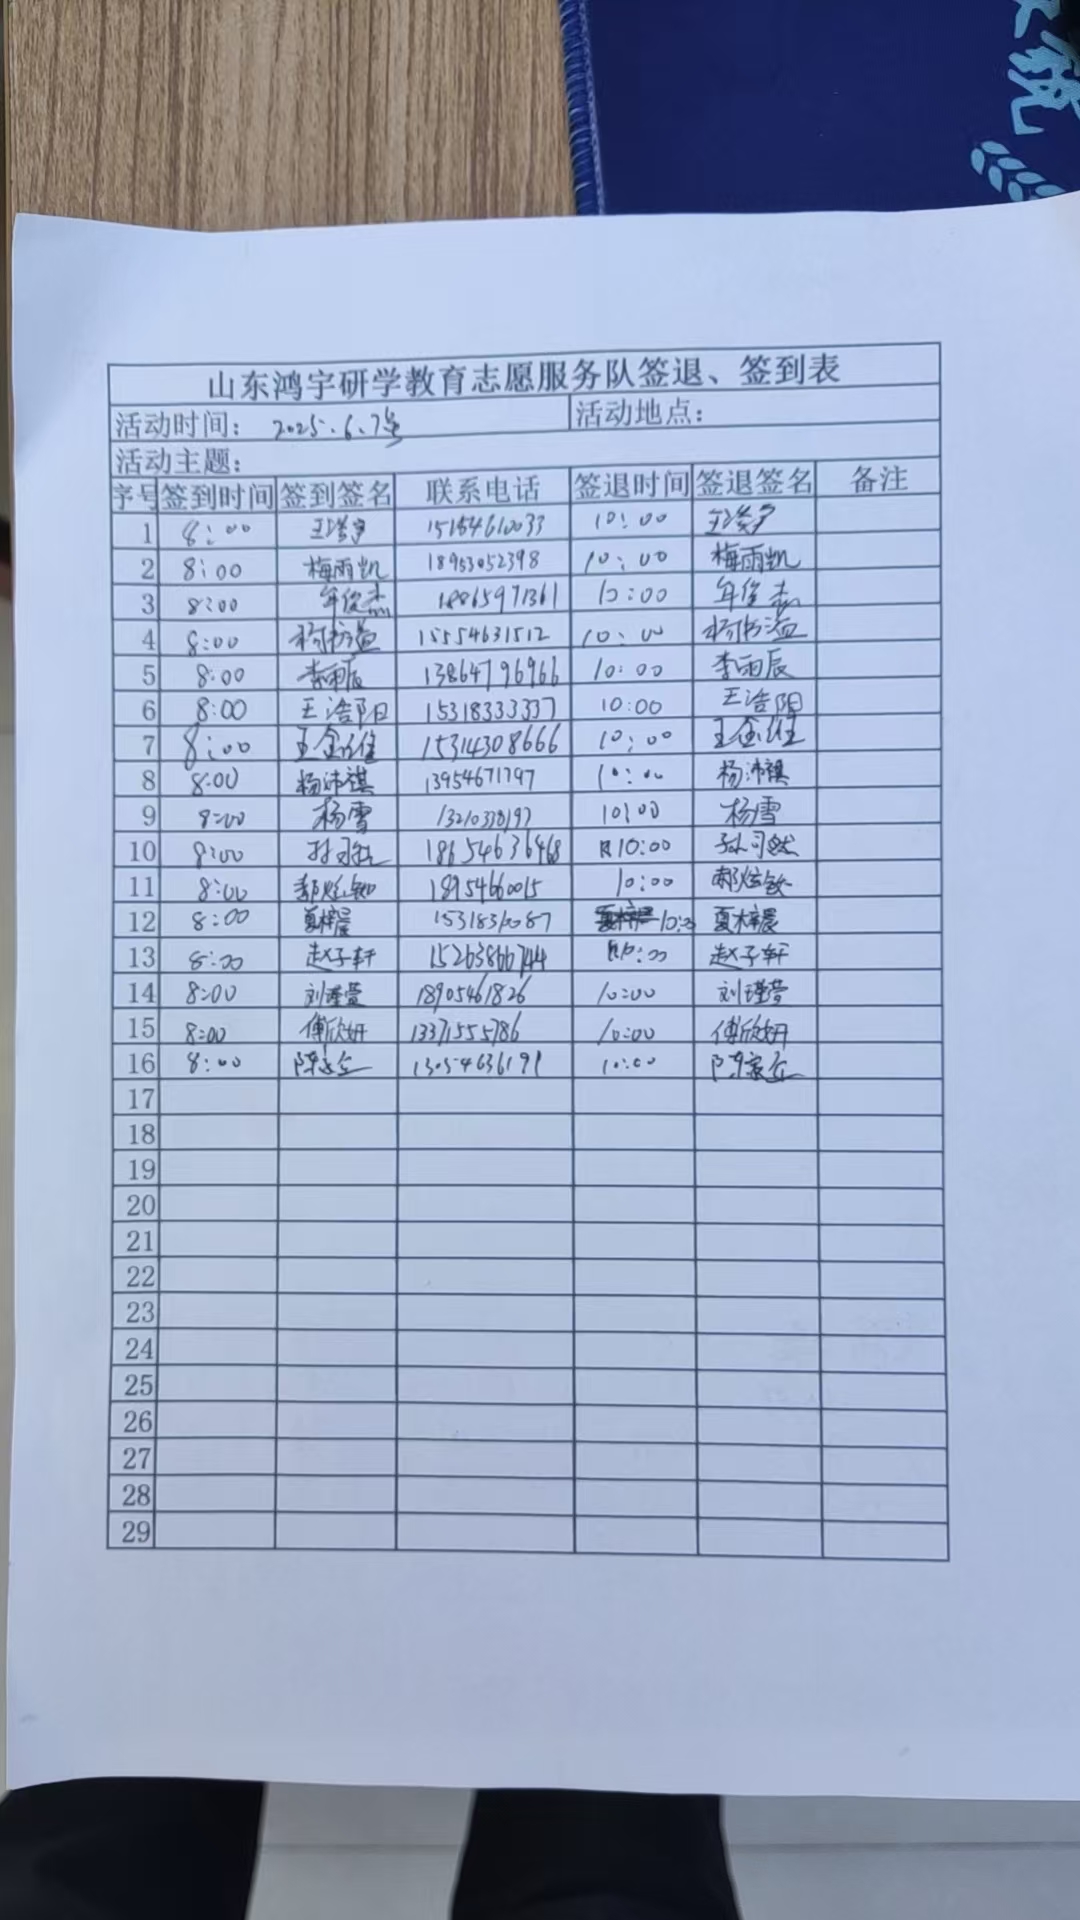 山东鸿宇研学教育志愿服务队签退、签到表
活动时间: 2025.6.7号 活动地点:
活动主题:
序号 签到时间 签到签名 联系电话 签退时间 签退签名 备注
1 8:00 15154610033 10:00
2 8:00 梅雨凯 18953052398 10:00 梅雨凯
3 8:00 年俊杰 18865971361 10:00 年俊杰
4 8:00 15554631512 10:00
5 8:00 李雨辰 13864796966 10:00 李雨辰
6 8:00 王浩阳 15318333337 10:00 王浩阳
7 8:00 15314308666 10:00
8 8:00 杨沛祺 13954671797 10:00 杨沛祺
9 8:00 杨雪 10:00 杨雪
10 8:00 10:00 孙司然
11 8:00 18954660015 10:00
12 8:00 夏梓晨 10:00 夏梓晨
13 8:00 赵子轩 15263866744 10:00 赵子轩
14 8:00 刘瑾萱 18905461826 10:00 刘瑾萱
15 8:00 傅欣妍 13371555786 10:00 傅欣妍
16 8:00 13054636191 10:00
17
18
19
20
21
22
23
24
25
26
27
28
29